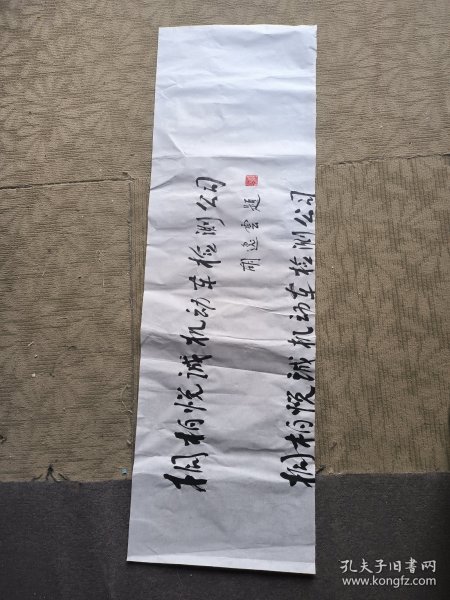 桐柏悦诚机动车检测公司
云题
桐柏悦诚机动车检测公司
孔夫子旧书网
www.kongfz.com